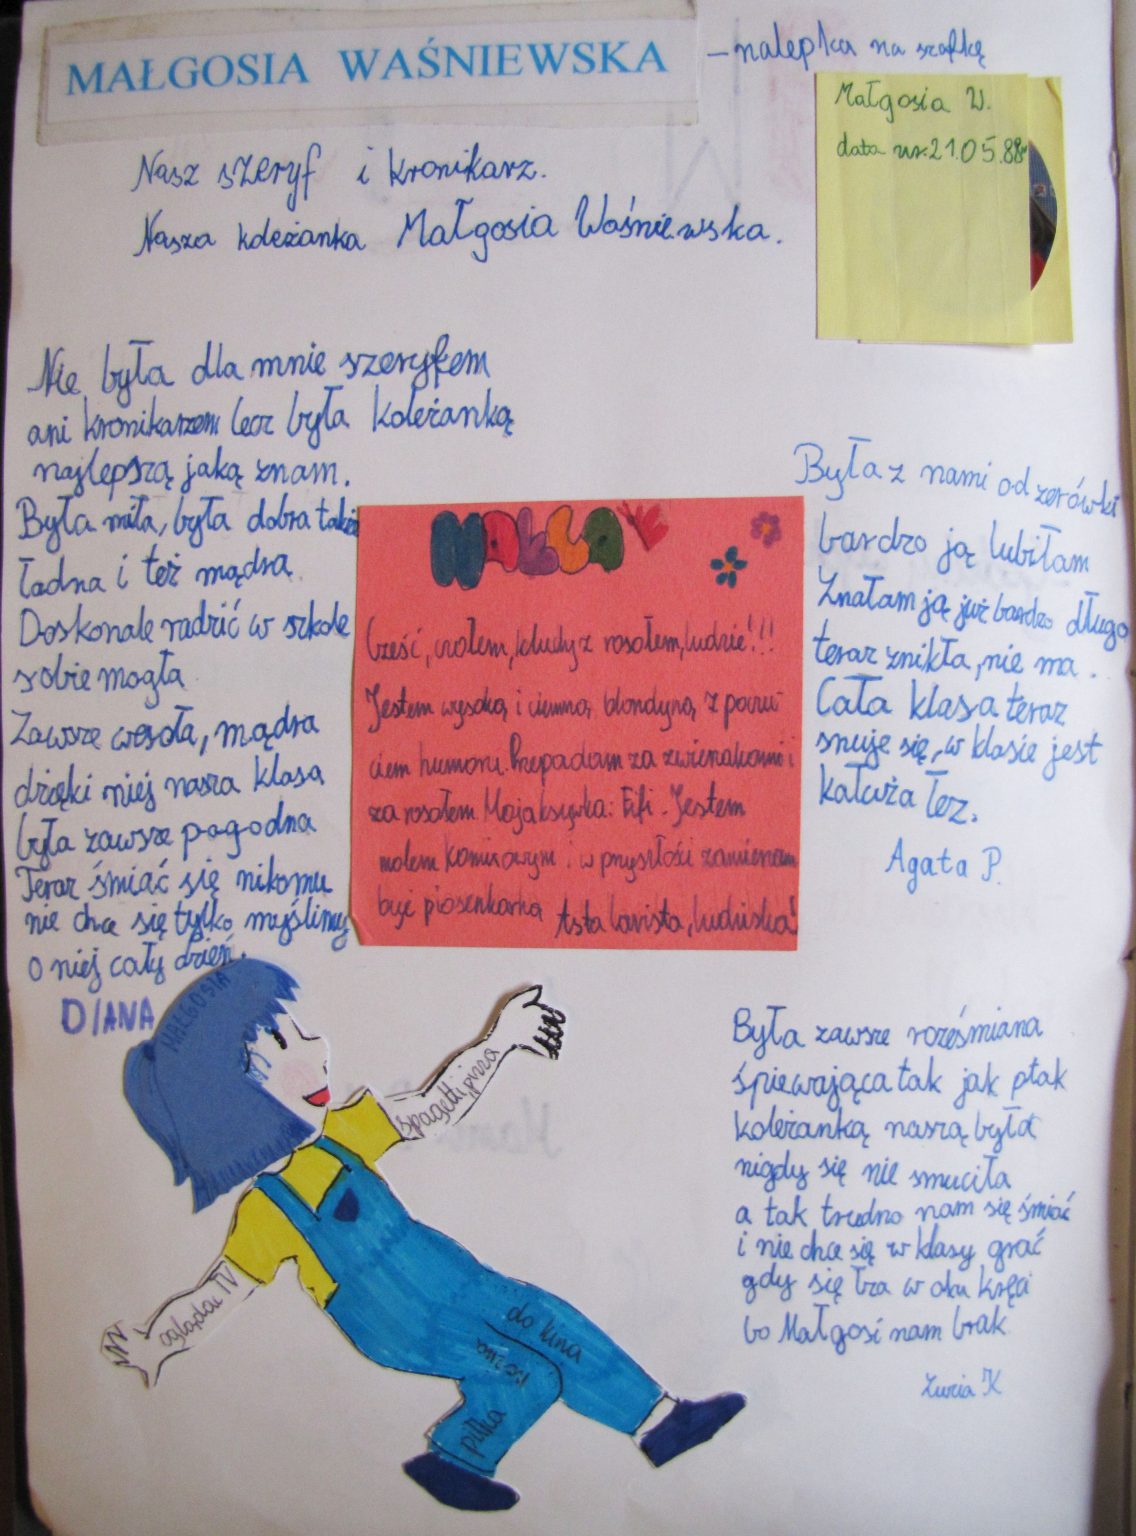 MAŁGOSIA WAŚNIEWSKA
– nalepka na szafkę
Małgosia W.
data ur. 21.05.88
Nasz szeryf i kronikarz.
Nasza koleżanka Małgosia Waśniewska.
Nie była dla mnie szeryfem
ani kronikarzem lecz była koleżanką
najlepszą jaką znam.
Była miła, była dobra także
ładna i też mądra
Doskonale radzić w szkole
sobie mogła
Zawsze wesoła, mądra
dzięki niej nasza klasa
była zawsze pogodna
Teraz śmiać się nikomu
nie chce się tylko myślimy
o niej cały dzień.
DIANA
MAŁGA
Cześć, czołem, kluchy z rosołem, ludzie!!!
Jestem wysoką i ciemną blondyną z poczu-
ciem humoru. Przepadam za zwierzakami i
za rosołem Moja ksywka: Fifi. Jestem
molem komiksowym i w przyszłości zamierzam
być piosenkarką Asta lavista, ludziska!
Była z nami od zerówki
bardzo ją lubiłam
Znałam ją już bardzo długo
teraz znikła, nie ma.
Cała klasa teraz
snuje się, w klasie jest
kałuża łez.
Agata P.
Była zawsze roześmiana
śpiewająca tak jak ptak
koleżanką naszą była
nigdy się nie smuciła
a tak trudno nam się śmiać
i nie chce się w klasy grać
gdy się łza w oku kręci
bo Małgosi nam brak
Zuzia K
MAŁGOSIA
spagetti, pizza
oglądać TV
do kina
nożna
piłka